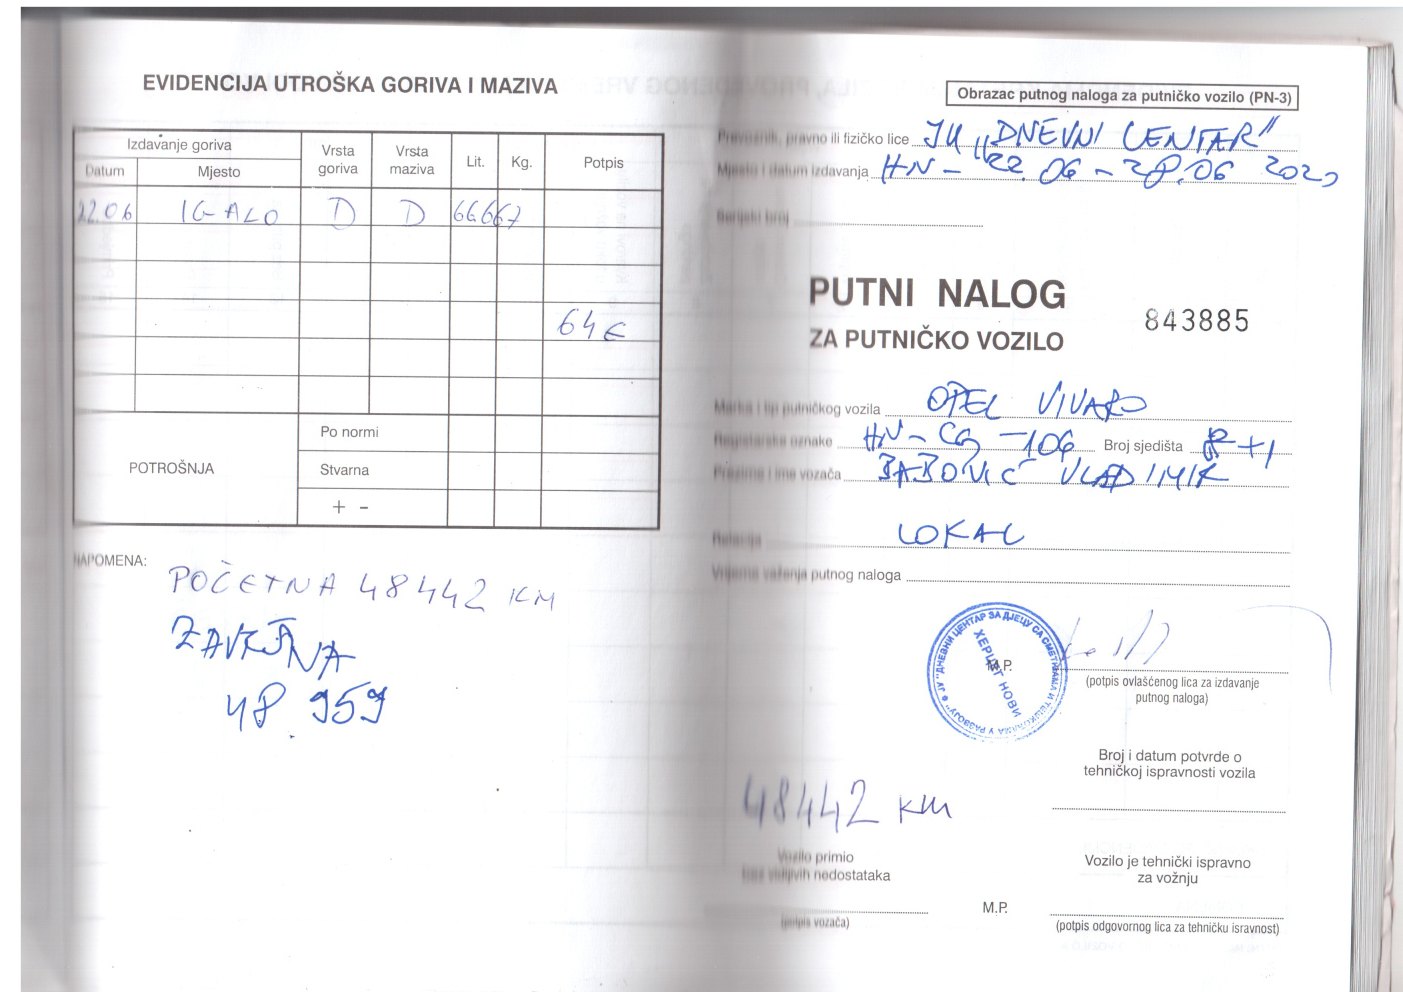 EVIDENCIJA UTROŠKA GORIVA I MAZIVA
Izdavanje goriva
Datum
Mjesto
Vrsta goriva
Vrsta maziva
Lit.
Kg.
Potpis
22.06 IGALO D D 66667
64€
POTROŠNJA
Po normi
Stvarna
+ -
NAPOMENA:
POČETNA 48442 KM
ZAVRŠNA
48 959
Obrazac putnog naloga za putničko vozilo (PN-3)
Prevoznik, pravno ili fizičko lice JU „DNEVNI CENTAR"
Mjesto i datum izdavanja HN - 22.06 - 28.06 2020
Serijski broj
PUTNI NALOG
843885
ZA PUTNIČKO VOZILO
Marka i tip putničkog vozila OPEL VIVARO
Registarska oznake HN-CG-106 Broj sjedišta 8+1
Prezime i ime vozača BABOVIĆ VLADIMIR
Relacija LOKAL
Vrijeme važenja putnog naloga
ЈУ "ДНЕВНИ ЦЕНТАР ЗА ДЈЕЦУ СА СМЕТЊАМА И ТЕШКОЋАМА У РАЗВОЈУ"
ХЕРЦЕГ НОВИ
M.P.
(potpis ovlašćenog lica za izdavanje
putnog naloga)
Broj i datum potvrde o
tehničkoj ispravnosti vozila
48442 KM
Vozilo primio
bez vidljivih nedostataka
Vozilo je tehnički ispravno
za vožnju
M.P.
(potpis vozača)
(potpis odgovornog lica za tehničku isravnost)